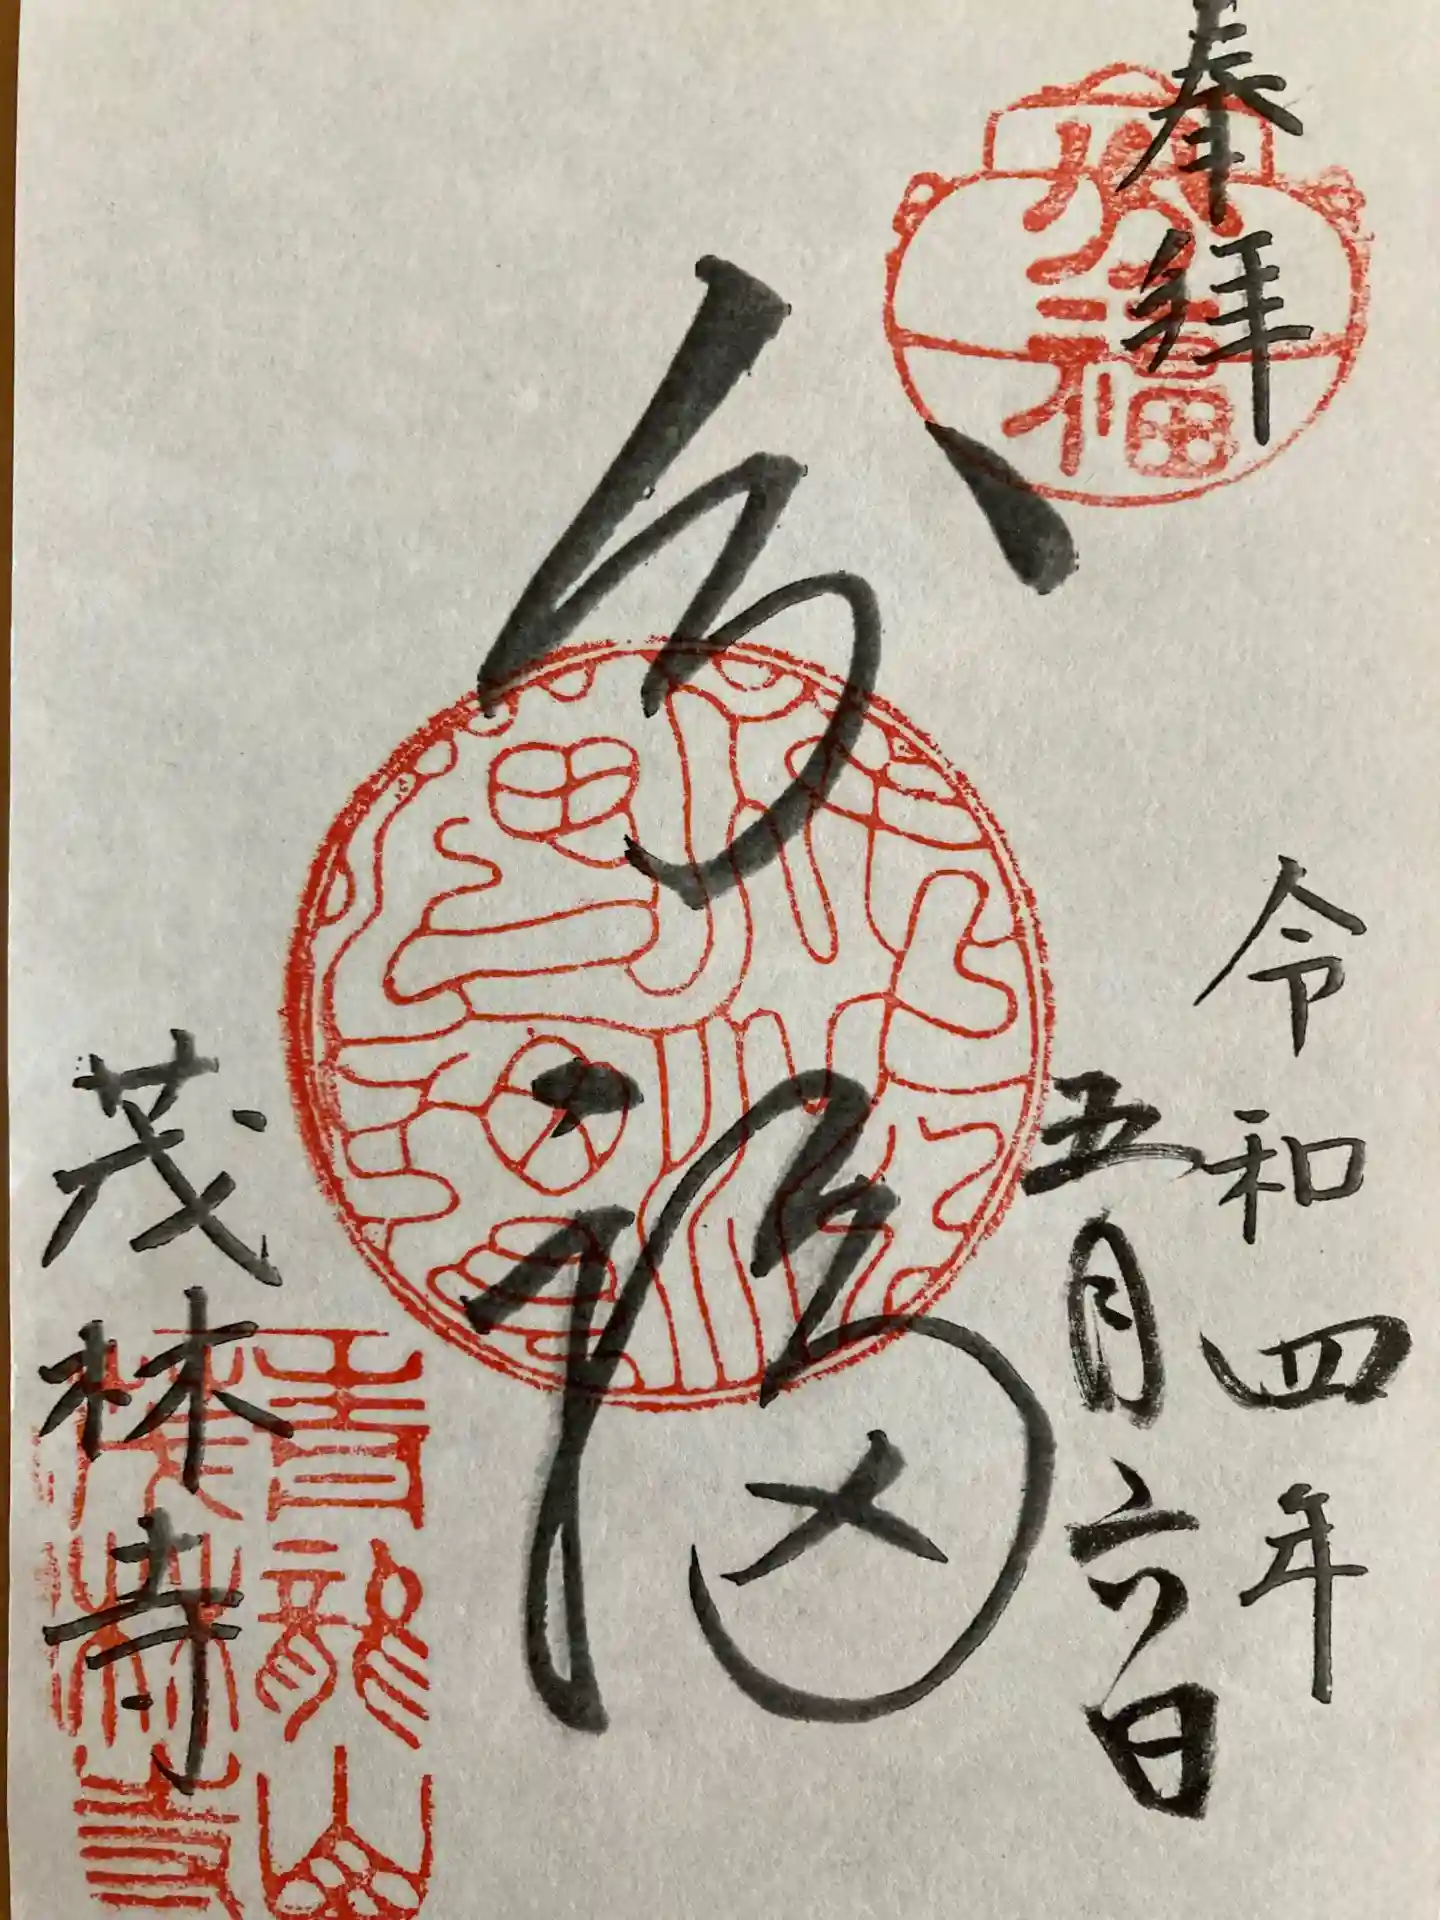 奉拝
令和四年
五月六日
分福
茂林寺
分福
青龍山
茂林寺